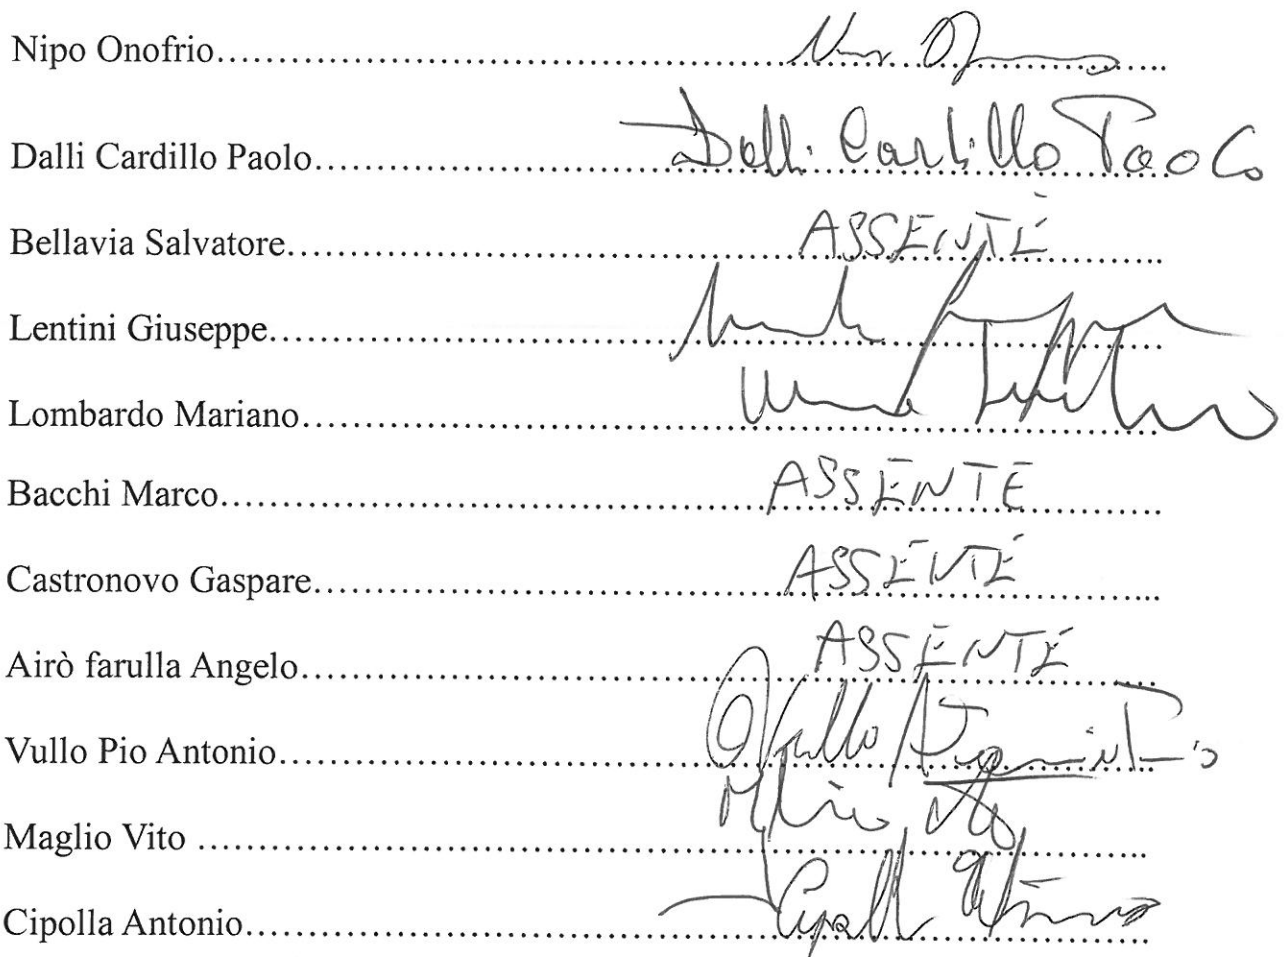 Nipo Onofrio................................................................
Dalli Cardillo Paolo................................ Dalli Cardillo Paolo
Bellavia Salvatore................................ ASSENTE
Lentini Giuseppe................................
Lombardo Mariano................................
Bacchi Marco................................ ASSENTE
Castronovo Gaspare................................ ASSENTE
Airò farulla Angelo................................ ASSENTE
Vullo Pio Antonio................................ Vullo
Maglio Vito ................................
Cipolla Antonio................................